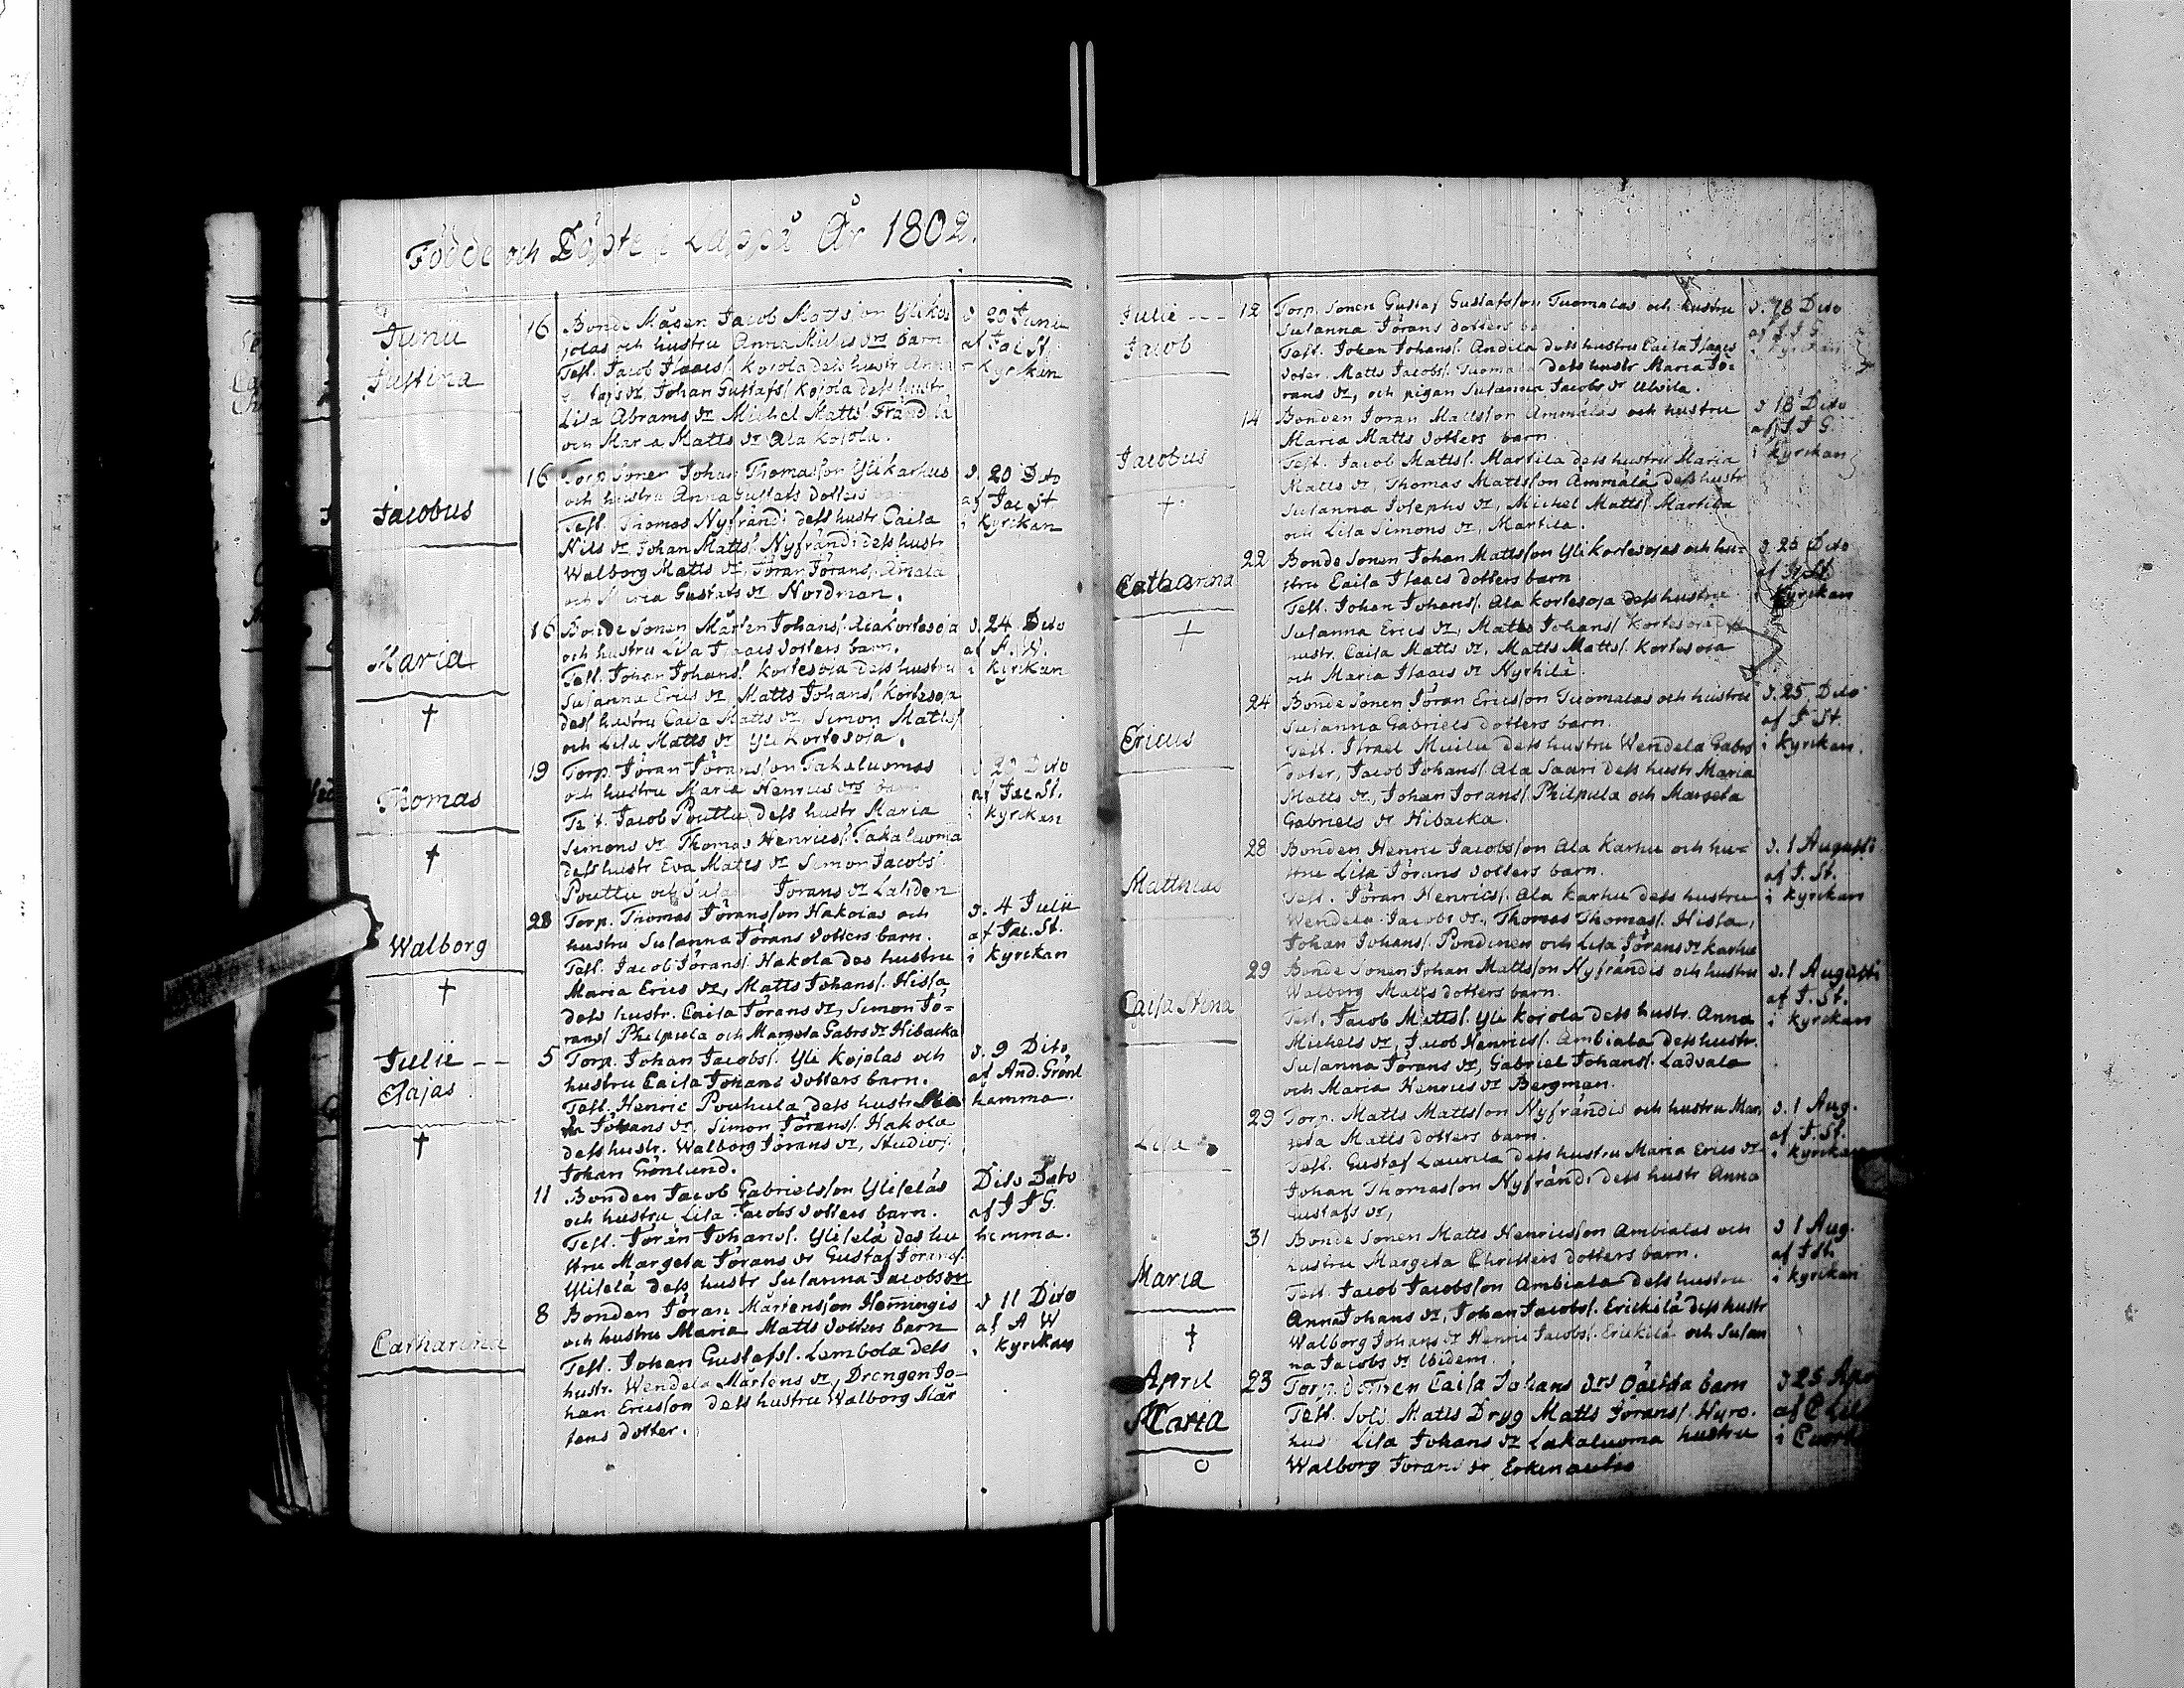 Födde och Döpte i Lappå År 1802.
Junii
Justina
16
Bonde Mågen Jacob Mattsson Ylikojolas och hustru Anna Michels drs barn
Test. Jacob Isaacs/. Kojola dess hustr Anna
Johan Gustafs/ Kojola dess hustr
Lisa Abrams dr Michel Matts/ Frändilä
och Maria Matts dr Ala Kojola.
d 20 Junii
af Jac St.
i Kyrkan
Jacobus
16
Torp. Sonen Johan Thomasson Ylikarhus
och hustru Anna Gustafs dotters barn
Test. Thomas Nyfrändi dess hustr Caisa
Nils dr, Johan Matts/. Nyfrändi dess hustr
Walborg Matts dr, Jöran Jörans/. Amälä
och Maria Gustafs dr Nordman.
d. 20 Dito
af Jac St.
i Kyrkan
Maria
†
16
Bonde Sonen Mårten Johans/. Ala Kortesoja
och hustru Lisa Isaacs dotters barn.
Test. Johan Johans/. Kortesoja dess hustru
Susanna Erics dr, Matts Johans/. Kortesoja
dess hustru Caisa Matts dr, Simon Matts/
och Lisa Matts dr Yli Kortesoja.
d. 24 Dito
af A. W.
i Kyrkan
Thomas
†
19
Torp. Jöran Jöransson Takaluomas
och hustru Maria Henrics drs barn
Test. Jacob Pouttu dess hustr Maria
Simons dr Thomas Henrics/. Takaluoma
dess hustr Eva Matts dr Simon Jacobs/.
Pouttu och Jörans dr Lahden
Dito
af Jac St.
i Kyrkan
Walborg
†
28
Torp. Thomas Jöransson Hakolas och
hustru Susanna Jörans dotters barn.
Test. Jacob Jörans/. Hakola des hustru
Maria Erics dr, Matts Johans/. Hissa,
dess hustr. Caisa Jörans dr, Simon Jö-
rans/ Philpula och Margeta Gabrs dr Hibacka
d. 4 Julii
af Jac. St.
i Kyrkan
Julii --
Elajas
†
5
Torp. Johan Jacobs/. Yli Kojolas och
hustru Caisa Johans dotters barn.
Test. Henric Pouhula dess hustr
Johans dr, Simon Jörans/. Hakola
dess hustr. Walborg Jörans dr, Studios/.
Johan Grönlund.
d. 9 Dito
af And. Grönl
hemma.
11
Bonden Jacob Gabrielsson Yliseläs
och hustru Lisa Jacobs dotters barn.
Test. Jöran Johans/. Yliselä des hu
stru Margeta Jörans dr Gustaf Jörans/.
Yliselä dess hustr Susanna Jacobs dr
Dito Dito
af J J G.
hemma.
Catharina
8
Bonden Jöran Mårtensson Hemingis
och hustru Maria Matts dotters barn
Test. Johan Gustafs/. Lambola dess
hustr. Wendela Mårtens dr, Drengen Jo-
han Ericsson dess hustru Walborg Mår
tens dotter.
d 11 Dito
af A W
i Kyrkan
Julii ---
Jacob
12
Torp. Sonen Gustaf Gustafsson Tuomalas och hustru
Susanna Jörans dotters
Test. Johan Johans/. Andila dess hustru Caisa Isaacs
doter. Matts Jacobs/. Tuomala dess hustr Maria Jö-
rans dr, och pigan Susanna Jacobs dr
d. 18 Dito
af J J G.
i Kyrkan
Jacobus
†
14
Bonden Jöran Mattsson Ammäläs och hustru
Maria Matts dotters barn
Test. Jacob Matts/. Martila dess hustru Maria
Matts dr, Thomas Mattsson Ammälä dess hustr
Susanna Josephs dr, Michel Matts/. Martila
och Lisa Simons dr, Martila.
d 18 Dito
af J J G
i Kyrkan
Catharina
†
22
Bonde Sonen Johan Mattsson Yli Kortesojas och hu-
stru Caisa Isaacs dotters barn
Test. Johan Johans/. Ala Kortesoja dess hustru
Susanna Erics dr, Matts Johans/ Kortesoja
hustr. Caisa Matts dr, Matts Matts/. Kortesoja
och Maria Isaacs dr Nyrhilä.
d. 25 Dito
af
i Kyrkan
Ericus
24
Bonde Sonen Jöran Ericsson Tuomalas och hustru
Susanna Gabriels dotters barn.
Test. Israel Muilu dess hustru Wendela Gabrs
doter, Jacob Johans/. Ala Saari dess hustr Maria
Matts dr, Johan Jorans/. Philpula och Margeta
Gabriels dr Hibacka.
d. 25 Dito
af J St.
i Kyrkan.
Matthias
28
Bonden Henric Jacobsson Ala Karhu och hu-
stru Lisa Jörans dotters barn.
Test. Jöran Henrics/. Ala Karhu dess hustru
Wendela Jacobs dr, Thomas Thomas/. Hissa,
Johan Johans/. Pundinen och Lisa Jörans dr Karhu
d. 1 Augusti
af J. St.
i Kyrkan
Caisa Stina
29
Bonde Sonen Johan Mattsson Nyfrändis och hustru
Walborg Matts dotters barn.
Test. Jacob Matts/. Yli Kojola dess hustr. Anna
Michels dr, Jacob Henrics/. Ambiala dess hustr.
Susanna Jörans dr, Gabriel Johans/. Ladvala
och Maria Henrics dr Bergman.
d. 1 Augusti
af J. St.
i Kyrkan
Lisa
29
Torp. Matts Mattsson Nyfrändis och hustru Mar
geta Matts dotters barn.
Test. Gustaf Laurila dess hustru Maria Erics dr
Johan Thomasson Nyfrändi dess hustr Anna
Gustafs dr,
d. 1 Aug.
af J. St.
i Kyrkan
Maria
†
31
Bonde Sonen Matts Henricsson Ambialas och
hustru Margeta Christers dotters barn.
Test. Jacob Jacobsson Ambiala dess hustru
Anna Johans dr, Johan Jacobs/. Erickilä dess hustr
Walborg Johans dr Henric Jacobs/. Erickilä och Susan
na Jacobs dr Ibidem.
d 1 Aug.
af J St.
i Kyrkan
April
Maria
23
Torp. dottren Caisa Johans drs Oäckta barn
Test. Sold Matts Dryg Matts Jörans/.
Lisa Johans dr Lakaluoma hustru
Walborg Jörans dr
d 25
af
i